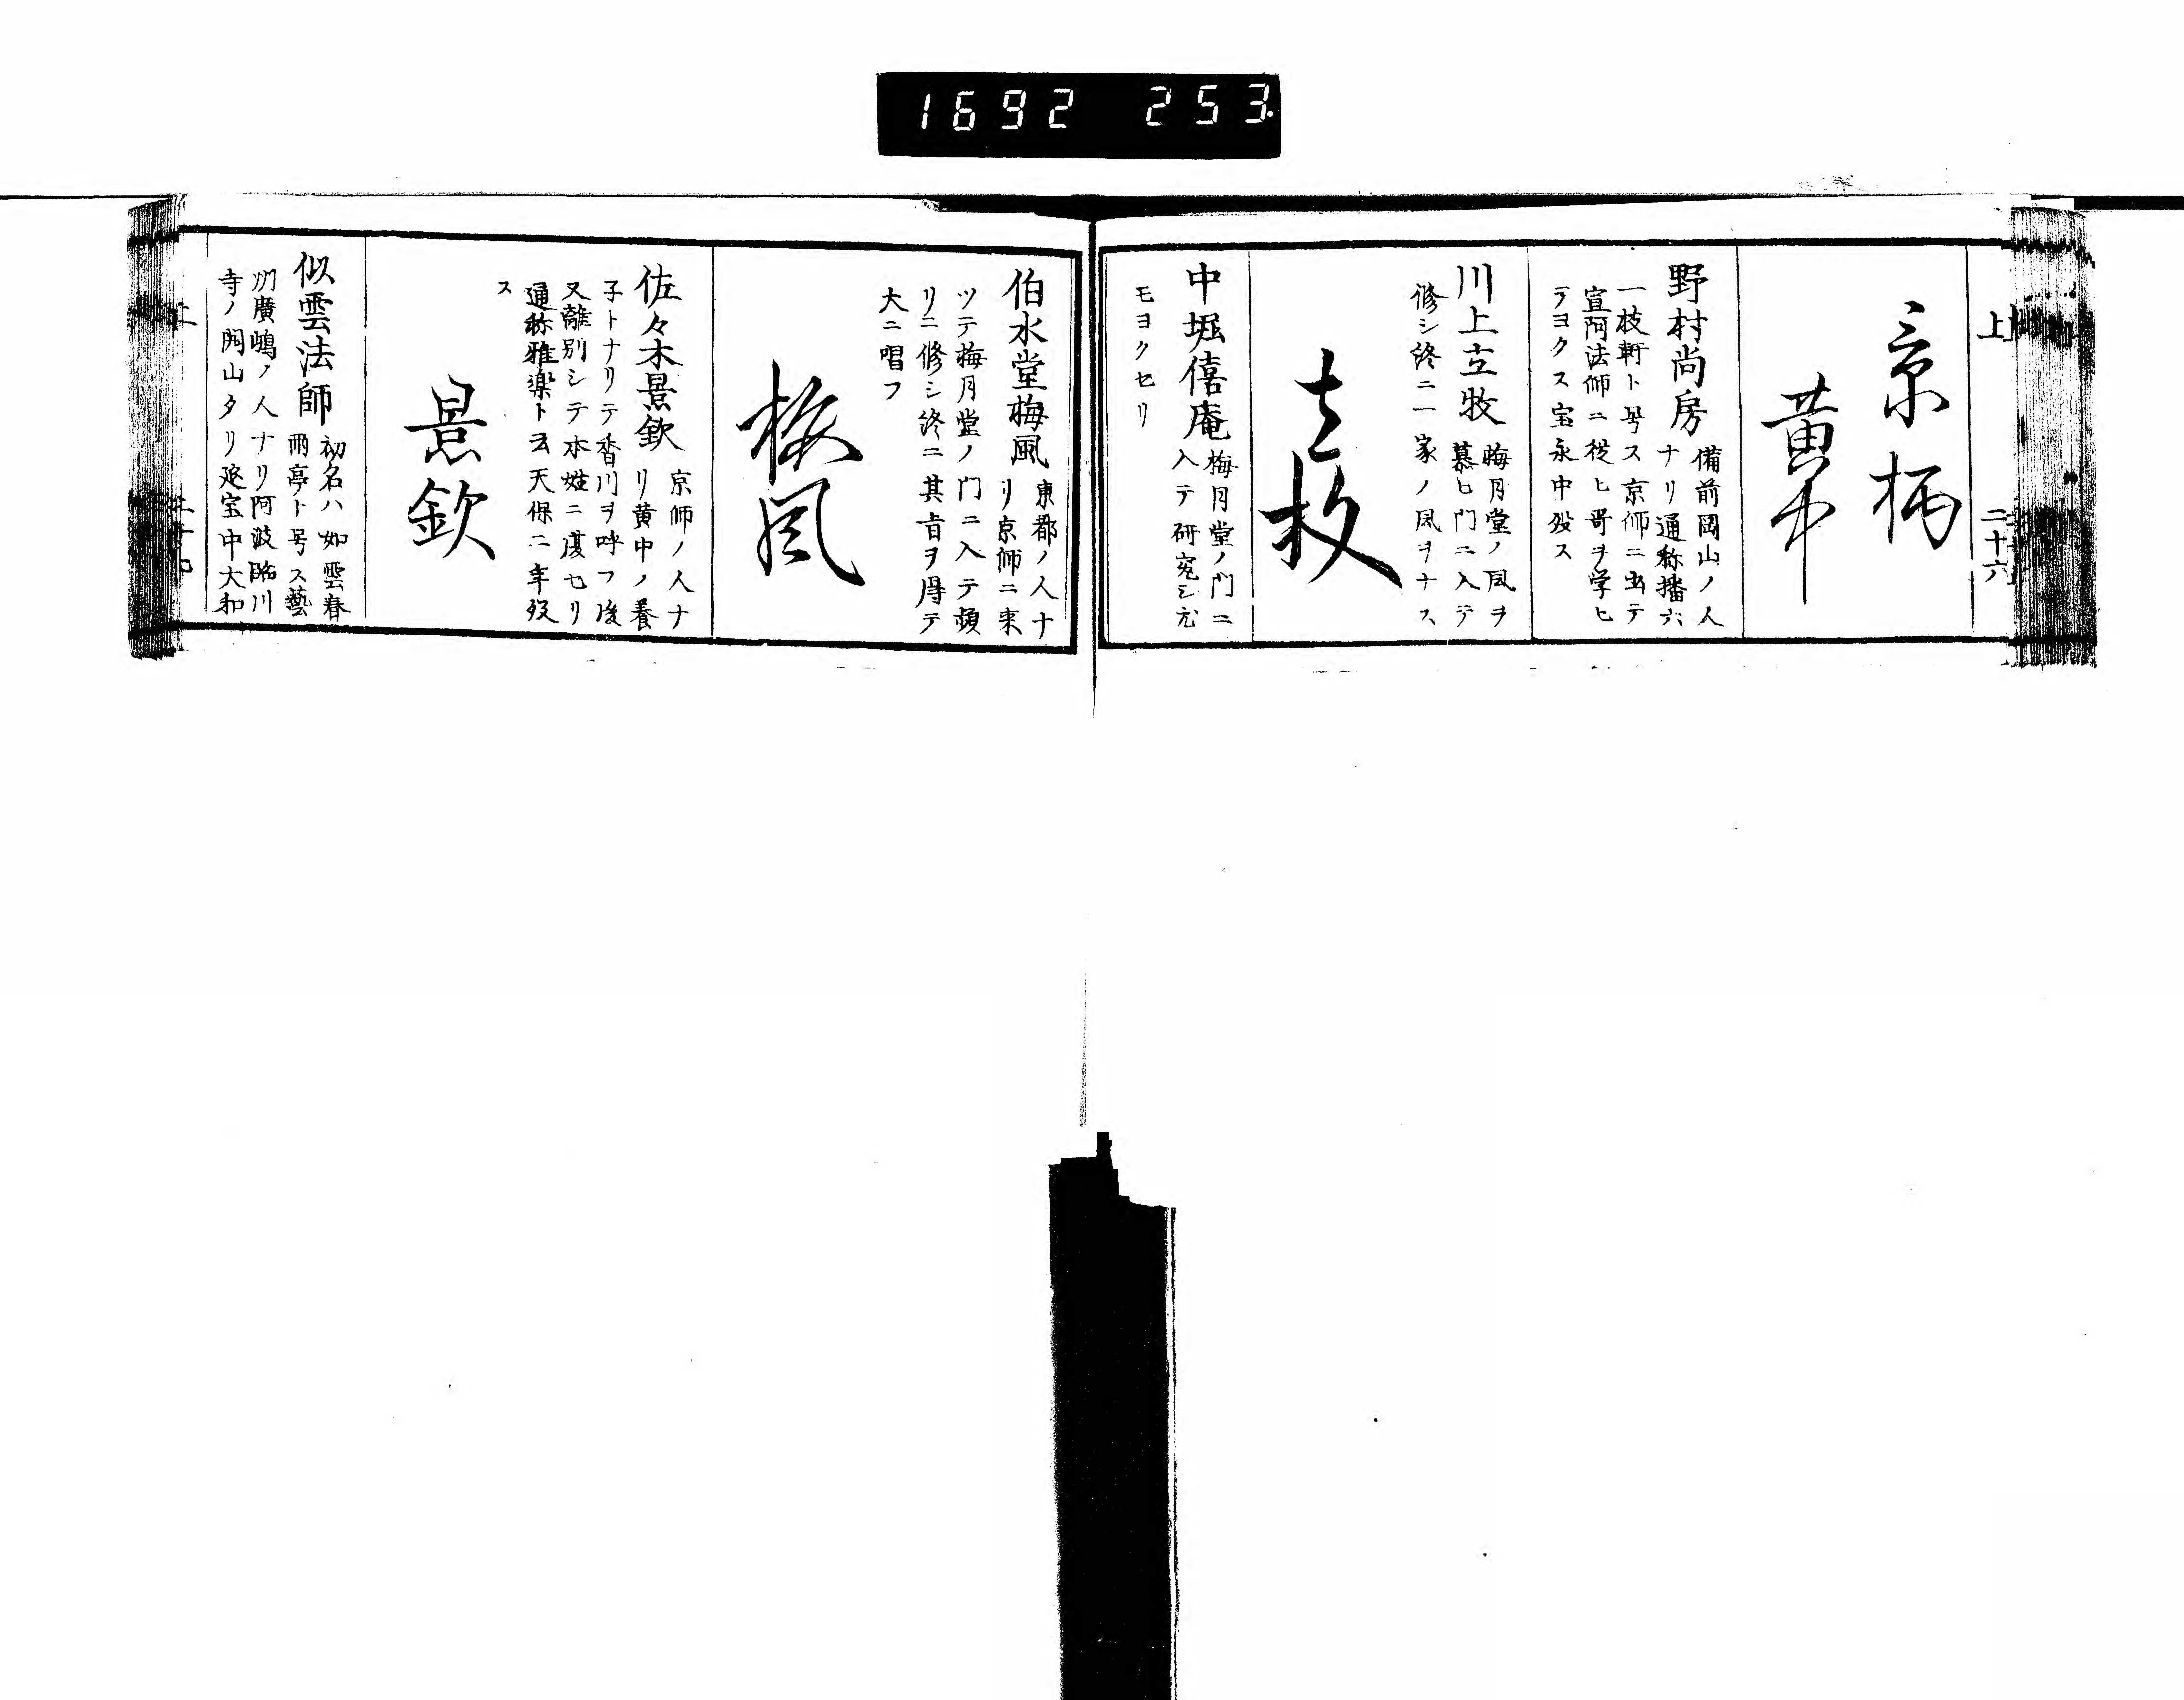 1692 253
上 二十六
景柄
黄中
野村尚房
備前岡山ノ人
ナリ通称播六
一枝軒ト号ス京師ニ出テ
宣阿法師ニ従ヒ哥ヲ学ヒ
テヨクス宝永中歿ス
川上立牧
梅月堂ノ風ヲ
慕ヒ門ニ入テ
修シ終ニ一家ノ風ヲナス
立牧
中堀僖庵
梅月堂ノ門ニ
入テ研究シ尤
モヨクセリ
伯水堂梅風
東都ノ人ナ
リ京師ニ来
ツテ梅月堂ノ門ニ入テ頻
リニ修シ終ニ其旨ヲ得テ
大ニ唱フ
梅風
佐々木景欽
京師ノ人ナ
リ黄中ノ養
子トナリテ香川ヲ呼フ後
又離別シテ本姓ニ復セリ
通称雅楽ト云天保二年歿
ス
景欽
似雲法師
初名ハ如雲春
雨亭ト号ス藝
州廣嶋ノ人ナリ阿波臨川
寺ノ開山タリ延宝中大和